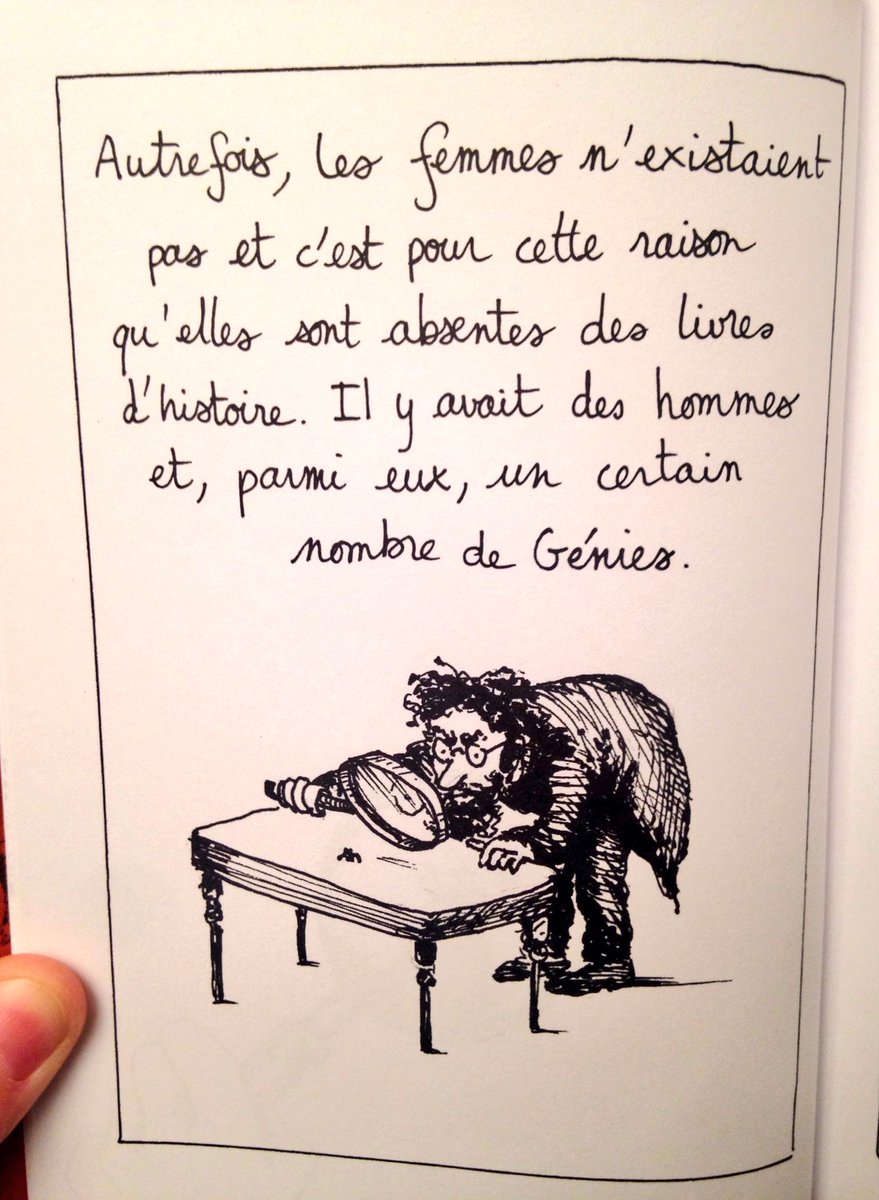 Autrefois, les femmes n'existaient
pas et c'est pour cette raison
qu'elles sont absentes des livres
d'histoire. Il y avait des hommes
et, parmi eux, un certain
nombre de Génies.